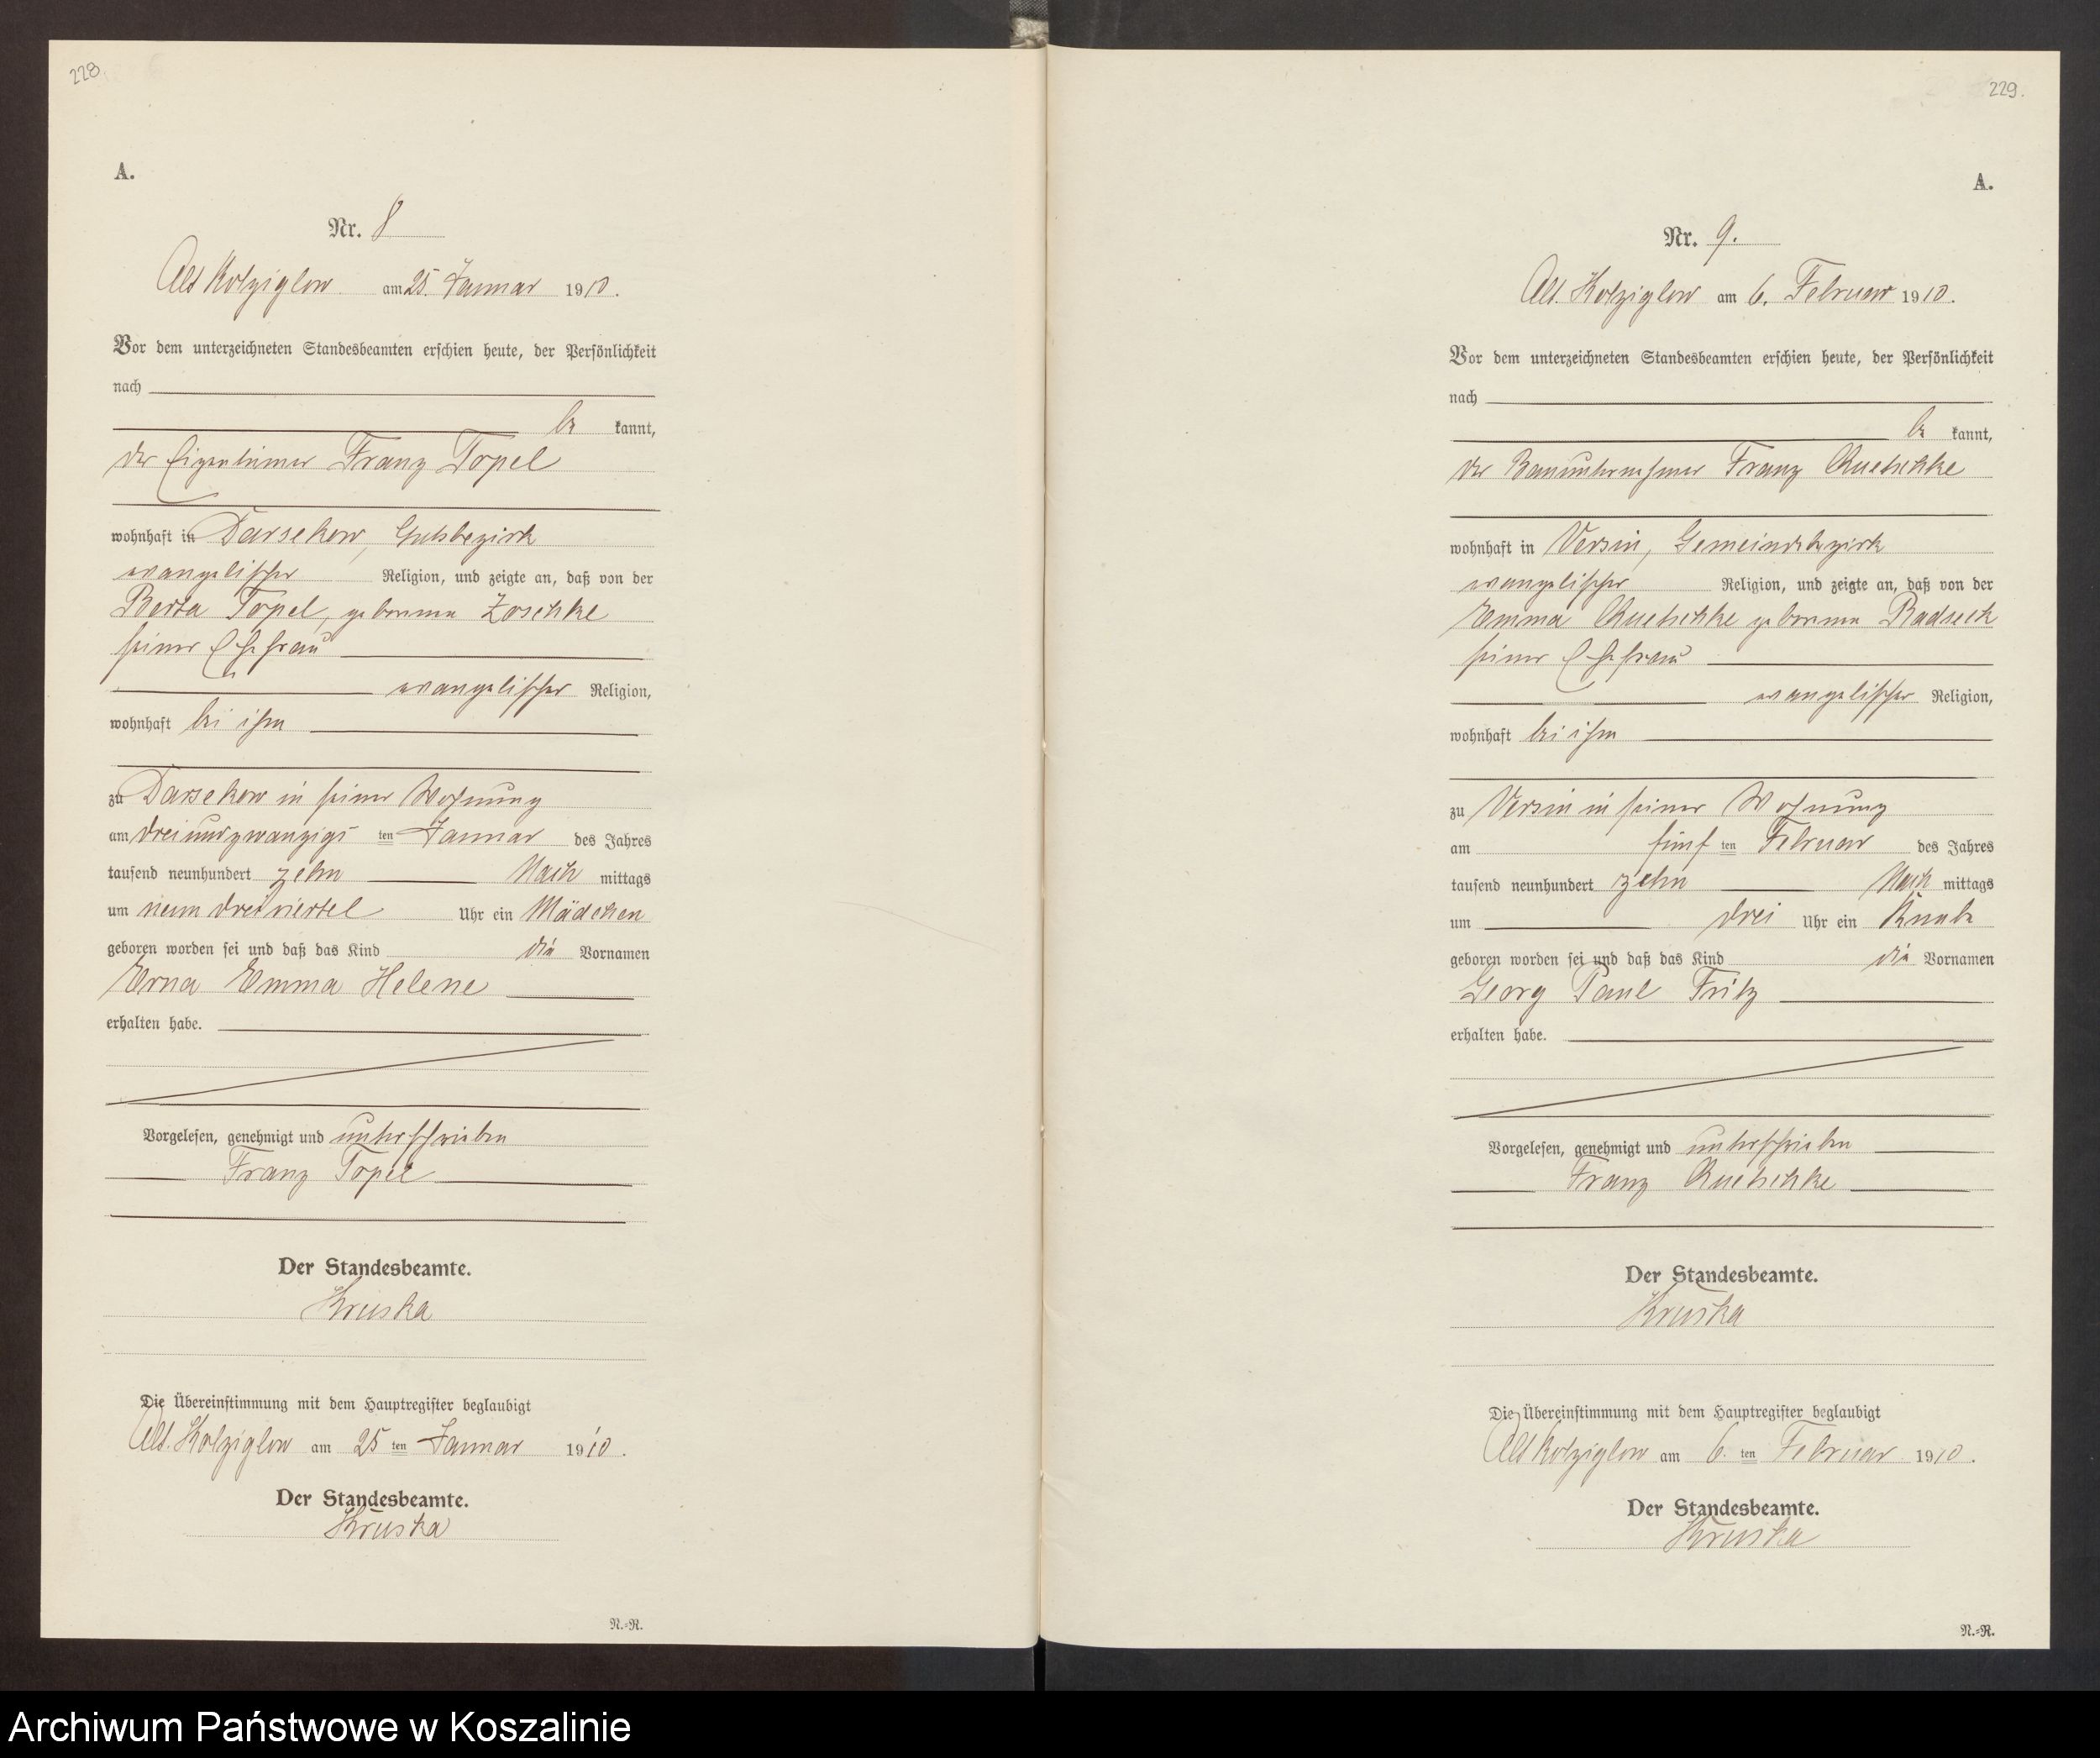 228
A.
Nr. 8
Alt Kolziglow am 25. Januar 1910.
Vor dem unterzeichneten Standesbeamten erschien heute, der Persönlichkeit
nach
be kannt,
der Eigentümer Franz Topel
wohnhaft in Darsekow, Gutsbezirk
evangelischer Religion, und zeigte an, daß von der
Berta Topel, geborenen Zoschke
seiner Ehefrau
evangelischer Religion,
wohnhaft bei ihm
zu Darsekow in seiner Wohnung
am dreiundzwanzigs ten Januar des Jahres
tausend neunhundert zehn Nach mittags
um neun dreiviertel Uhr ein Mädchen
geboren worden sei und daß das Kind die Vornamen
Erna Emma Helene
erhalten habe.
Vorgelesen, genehmigt und unterschrieben
Franz Topel
Der Standesbeamte.
Kruska
Die Übereinstimmung mit dem Hauptregister beglaubigt
Alt. Kolziglow am 25 ten Januar 1910.
Der Standesbeamte.
Kruska
N.-R.
229.
A.
Nr. 9.
Alt. Kolziglow am 6. Februar 1910.
Vor dem unterzeichneten Standesbeamten erschien heute, der Persönlichkeit
nach
be kannt,
der Bauunternehmer Franz Quetschke
wohnhaft in Versin, Gemeindebezirk
evangelischer Religion, und zeigte an, daß von der
Emma Quetschke geborenen Radseck
seiner Ehefrau
evangelischer Religion,
wohnhaft bei ihm
zu Versin in seiner Wohnung
am fünf ten Februar des Jahres
tausend neunhundert zehn Nach mittags
um drei Uhr ein Knabe
geboren worden sei und daß das Kind die Vornamen
Georg Paul Fritz
erhalten habe.
Vorgelesen, genehmigt und unterschrieben
Franz Quetschke
Der Standesbeamte.
Kruska
Die Übereinstimmung mit dem Hauptregister beglaubigt
Alt Kolziglow am 6. ten Februar 1910.
Der Standesbeamte.
Kruska
N.-R.
Archiwum Państwowe w Koszalinie